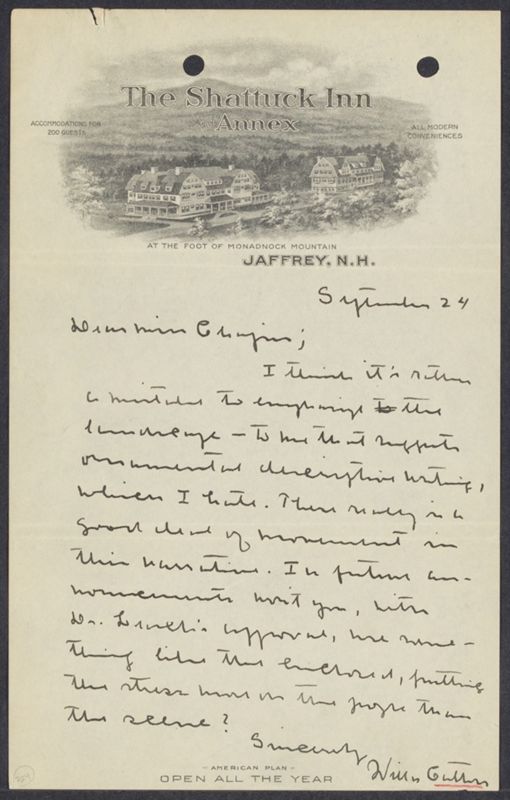 The Shattuck Inn
and Annex
ACCOMMODATIONS FOR
200 GUESTS
ALL MODERN
CONVENIENCES
AT THE FOOT OF MONADNOCK MOUNTAIN
JAFFREY, N.H.
September 24
Dear Miss Chapin;
I think it's rather
a mistake to emphasize to the
landscape — to me that suggests
ornamental descriptive writing,
which I hate. There really is a
good deal of movement in
this narrative. In future an-
nouncements won't you, with
Dr. approval, use some-
thing like the enclosed, putting
the stress more on the people than
the scene?
Sincerely
Willa Cather
- AMERICAN PLAN -
OPEN ALL THE YEAR